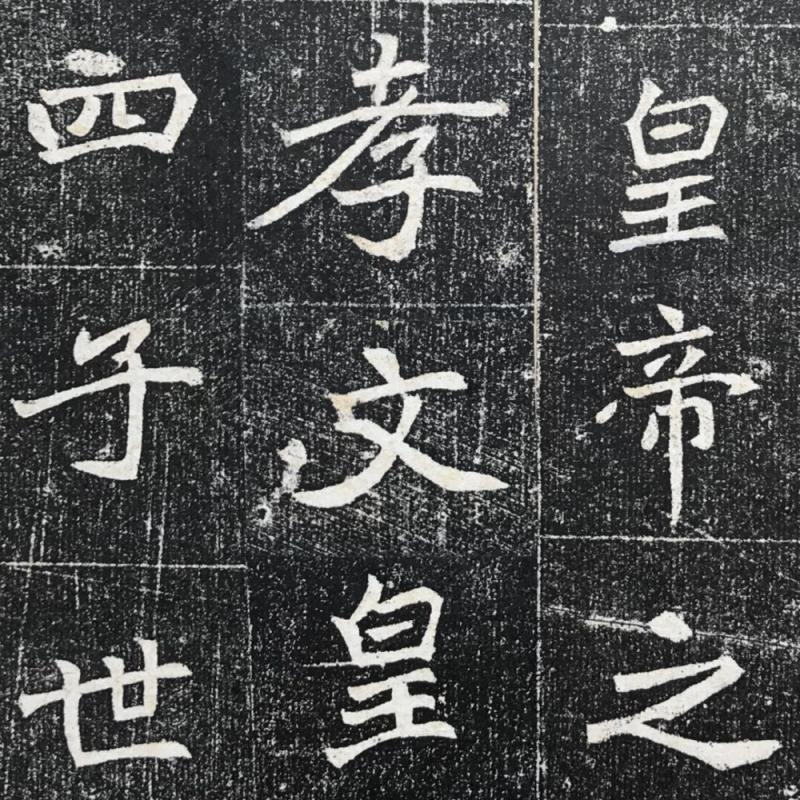 皇帝之
孝文皇
四子世